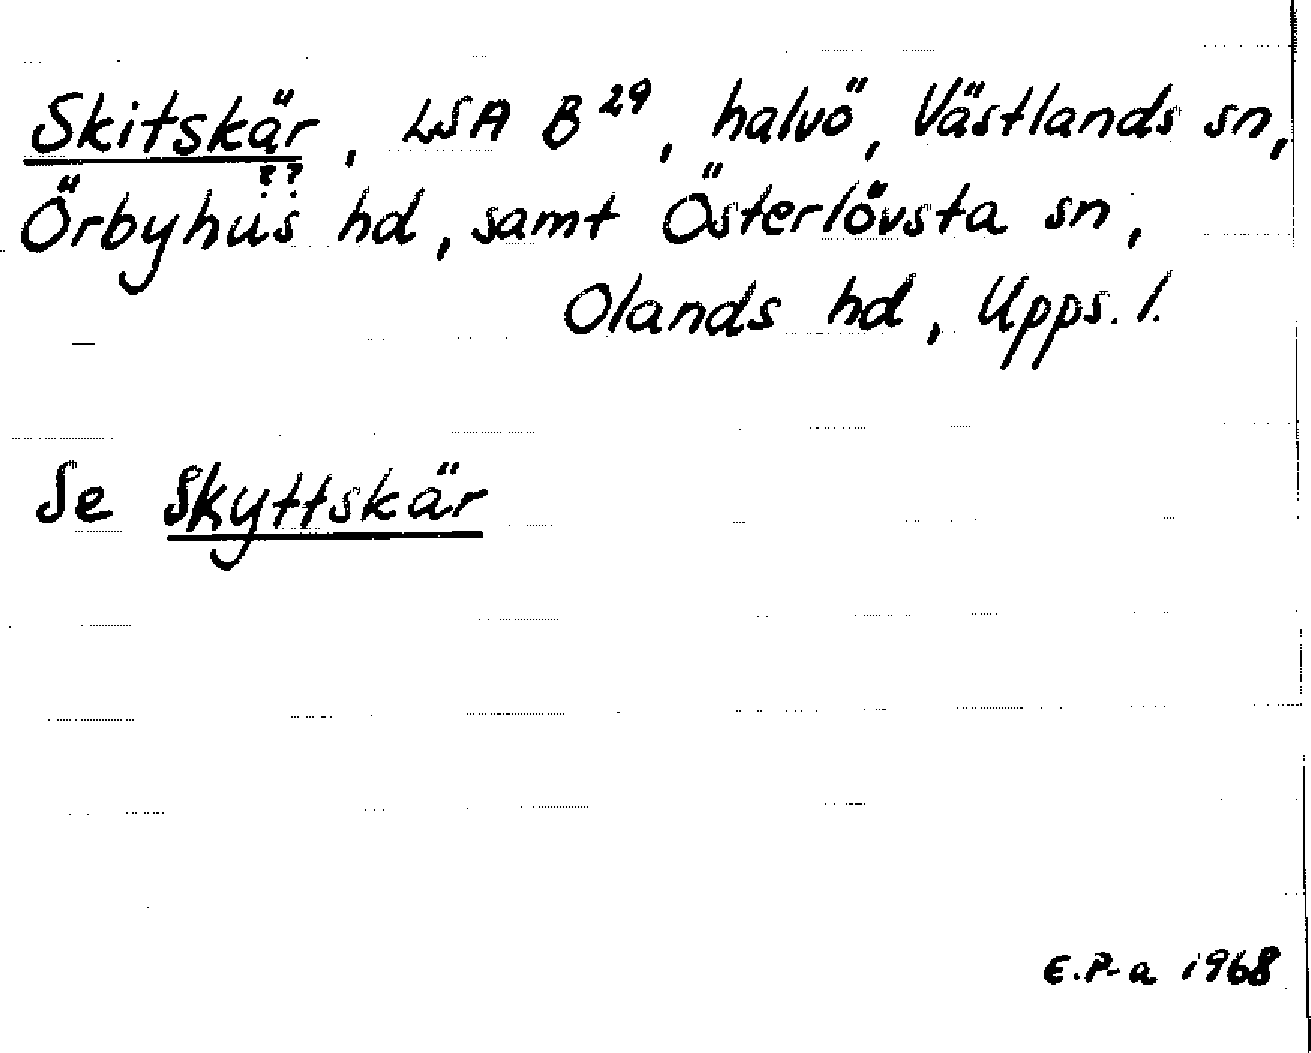 Skitskär, LSA B 29, halvö, Västlands sn,
??
Örbyhus hd, samt Österlövsta sn,
Olands hd, Upps. l.
Se Skyttskär
E.P-a 1968